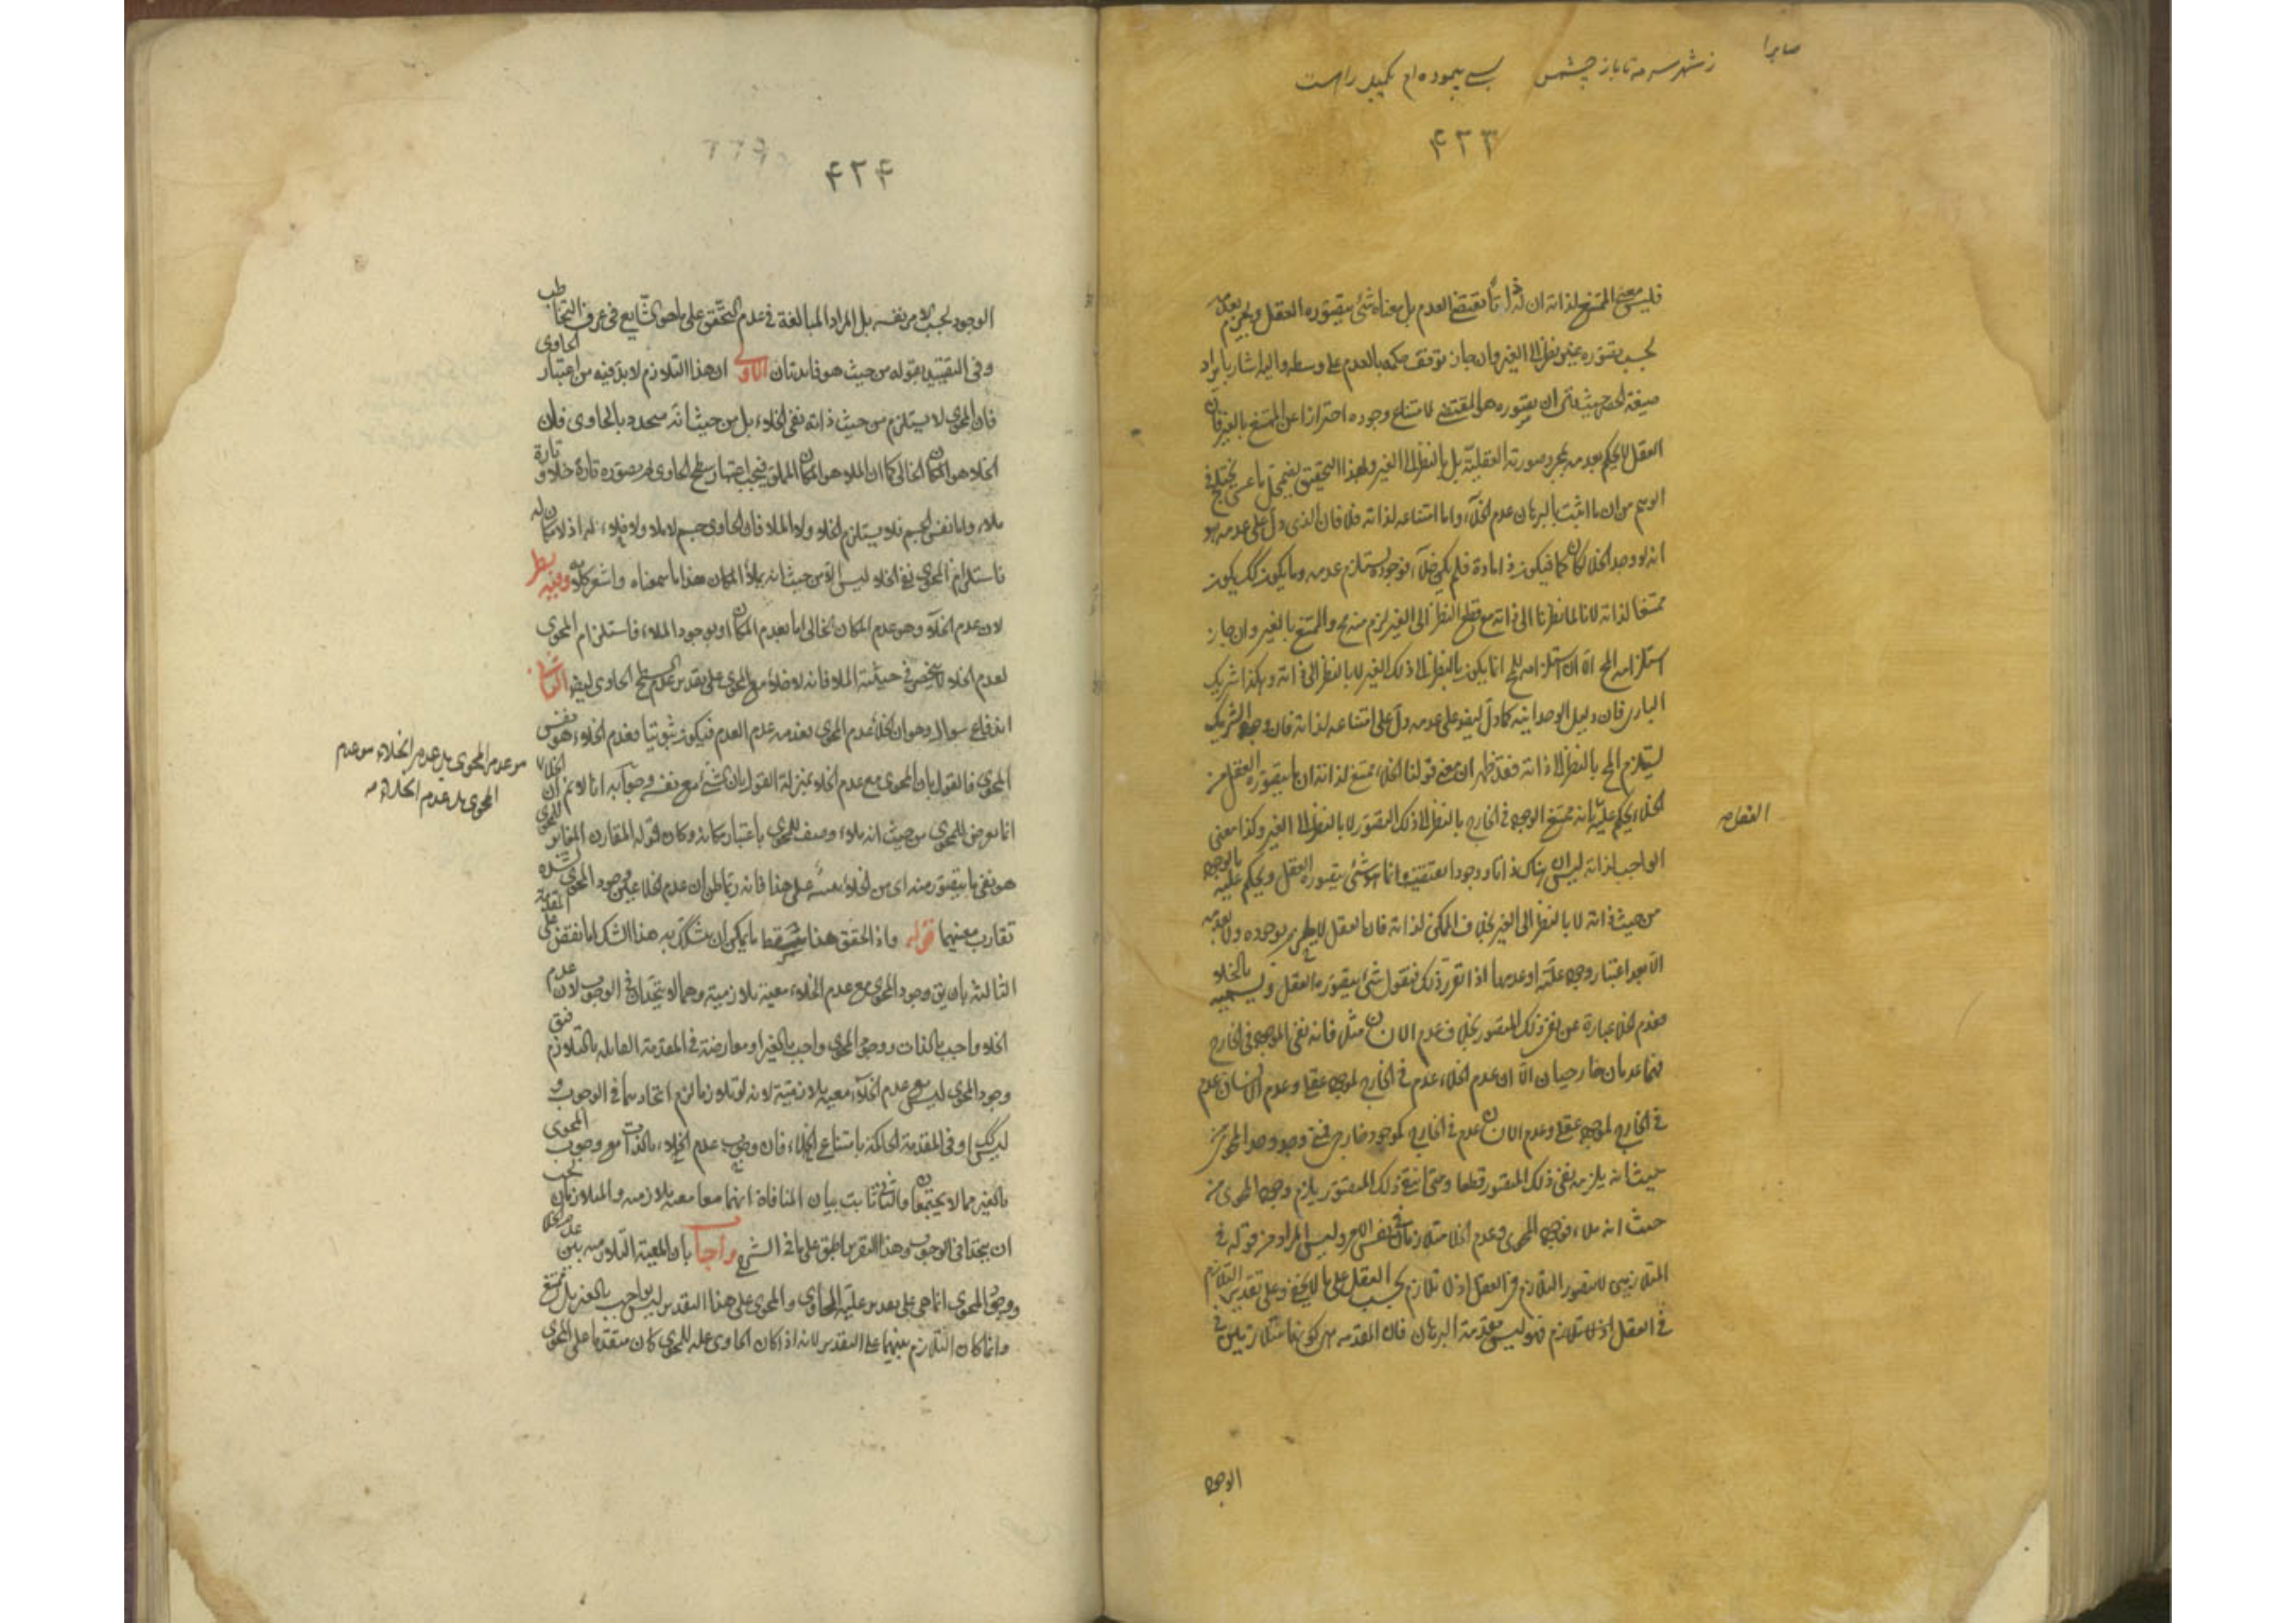 صابرا
ز شهر سه مه تا باز چشمس بسی پیموده ام یکمیل راهست
۴۲۳
فلیس معنی الممتنع لذاته ان له ذاتا تقتضی العدم بل معناه شئ یتصوره العقل ویجزم بعدمه
بحسب تصوره من غیر نظر الی الغیر وان جاز توقف حکمه بالعدم علی وسط والیه اشار بایراد
صیغة الحصر حیث قال ان تصوره هو المقتضی لامتناع وجوده احترازا عن الممتنع بالغیر فان
العقل لا یحکم بعدمه بمجرد صورته العقلیة بل بالنظر الی الغیر ولهذا التحقیق یضمحل ما عسی یختلج فی
الوهم من ان ما اثبت بالبرهان عدم الخلآء واما امتناعه لذاته فلا فان الذی دل علی عدمه هو
انه لو وجد الخلا لکان کما فیکون فی مادة فلم یکن خلآء فوجوده یستلزم عدمه وما یکون کک یکون
ممتنعا لذاته لانا لما نظرنا الی ذاته مع قطع النظر الی الغیر لزم منه مح والممتنع بالغیر وان جاز
استلزامه المح الا ان استلزامه للمح انما یکون بالنظر الی ذلک الغیر لا بالنظر الی ذاته وهکذا شریک
الباری فان دلیل الوحدانیة کما دل علی عدمه دل علی امتناعه لذاته فان وجود الشریک
یستلزم المح بالنظر الی ذاته فقد ظهر ان معنی قولنا الخلاء ممتنع لذاته ان ما یتصوره العقل من
الخلاء یحکم علیه بانه ممتنع الوجود فی الخارج بالنظر الی ذلک المتصور لا بالنظر الی الغیر وکذا معنی
الواجب لذاته لیس ان هناک ذاتا ووجودا تقتضیه وانما هو شئ یتصوره العقل ویحکم علیه بالوجود
من حیث ذاته لا بالنظر الی الغیر بخلاف الممکن لذاته فان العقل لا یجزم بوجوده ولا بعدمه
الا بعد اعتبار وجود علته او عدمها اذا تقرر ذلک فنقول شئ یتصوره العقل ویسمیه بالخلاء
فعدم الخلا عبارة عن نفی ذلک المتصور بخلاف عدم الانسان مثلا فانه نفی الموجود فی الخارج
فهما عدمان خارجیان الا ان عدم الخلاء عدم فی الخارج لموجود عقلی وعدم الانسان عدم
فی الخارج لموجود عقلی وعدم الانسان عدم فی الخارج لموجود خارجی فمتی وجد وجود المحوی من
حیث انه یلزمه نفی ذلک المتصور قطعا ومتی انتفی ذلک المتصور یلزم وجود المحوی من
حیث انه ملاء فوجود المحوی وعدم الخلا متلازمان فی نفس الامر ولیس المراد من قوله فی
المتلازمین للتصور التلازم فی العقل اذ لا تلازم بحسب العقل علی ما لا یخفی وعلی تقدیر التلازم
فی العقل اذ لا تلازم فهو لیس مقدمة البرهان فان المقدمه هی کونهما متلازمین فی
النقل صه
الوجود
۴۲۴
الوجود بحسب الامر نفسه بل المراد المبالغة فی عدم التحقق علی ما هو الشایع فی عرف التخاطب
وفی التقیید بقوله من حیث هو فایدتان الاولی ان هذا التلازم لا بد فیه من اعتبار الحاوی
فان المحوی لا یستلزم من حیث ذاته نفی الخلاء بل من حیث انه متحدد بالحاوی فان
الخلاء هو المکان الخالی کما ان الملاء هو المکان المملو فیجب اعتبار سطح الحاوی لم یتصوره تارة خلاء وتارة
ملاء واما نفس الجسم فلا یستلزم الخلاء ولا الملاء فان الحاوی جسم لا ملاء ولا خلاء له اذ لا مکان له
فاستلزام المحوی نفی الخلاء لیس الا من حیث انه یملاء المکان هذا ما سمعناه واشعر کلامه وفیه نظر
لان عدم الخلآء وهو عدم المکان الخالی اما بعدم المکان او بوجود الملاء فاستلزام المحوی
لعدم الخلاء لا ینحصر فی حیثیة الملاء فانه لا خلاء مع المحوی علی تقدیر عدم السطح الحاوی ایضا الثانیة
اندفاع سوال وهو ان الخلا عدم المحوی فعدمه عدم العدم فیکون ثبوتیا فعدم الخلاء هو نفس
المحوی فالقول بان المحوی مع عدم الخلاء بمنزلة القول بان الشئ مع نفسه وجوابه انا لا نم ان الخلاء
انما یعرض للمحوی من حیث انه ملاء وصف للمحوی باعتبار مکانه وکان قوله المقارن المغایر للمحوی
هو نفی ما یتصور منه ای من الخلاء تنبیه علی هذا فانه ربما ظن ان عدم الخلا عین وجود المحوی لشدة
تقارب معنیهما قوله واذ تحقق هذا سقط ما یمکن ان یشکک به هذا الشک اما نقض علی المقدمة
الثالثة بان یق وجود المحوی مع عدم الخلاء معیة تلازمیة وهما لا یتحدان فی الوجوب لان عدم
الخلاء واجب بالذات ووجود المحوی واجب بالغیر او معارضة فی المقدمة القائله بالتلازم فنق
وجود المحوی لیس مع عدم الخلاء معیة تلازمیة لانه لو تلازما لزم اتحادهما فی الوجوب و
لیس کک او فی المقدمة الحاکمة بامتناع الخلاء فان وجوب عدم الخلاء بالذات مع وجوب المحوی
بالغیر مما لا یجتمعان والثانی ثابت بیان المنافاة انهما معا معیة تلازمیه والمتلازمان یجب
ان یتحدا فی الوجوب وهذا التقریر اطبق علی ما فی الشرح واجاب بان المعیة التلازمیه بین عدم الخلا
ووجود المحوی انما هی علی تقدیر علیة الحاوی والمحوی علی هذا التقدیر لیس بواجب بالغیر بل ممتنع
وانما کان التلازم بینهما علی التقدیر لانه اذا کان الحاوی علة للمحوی کان متقدما علی المحوی